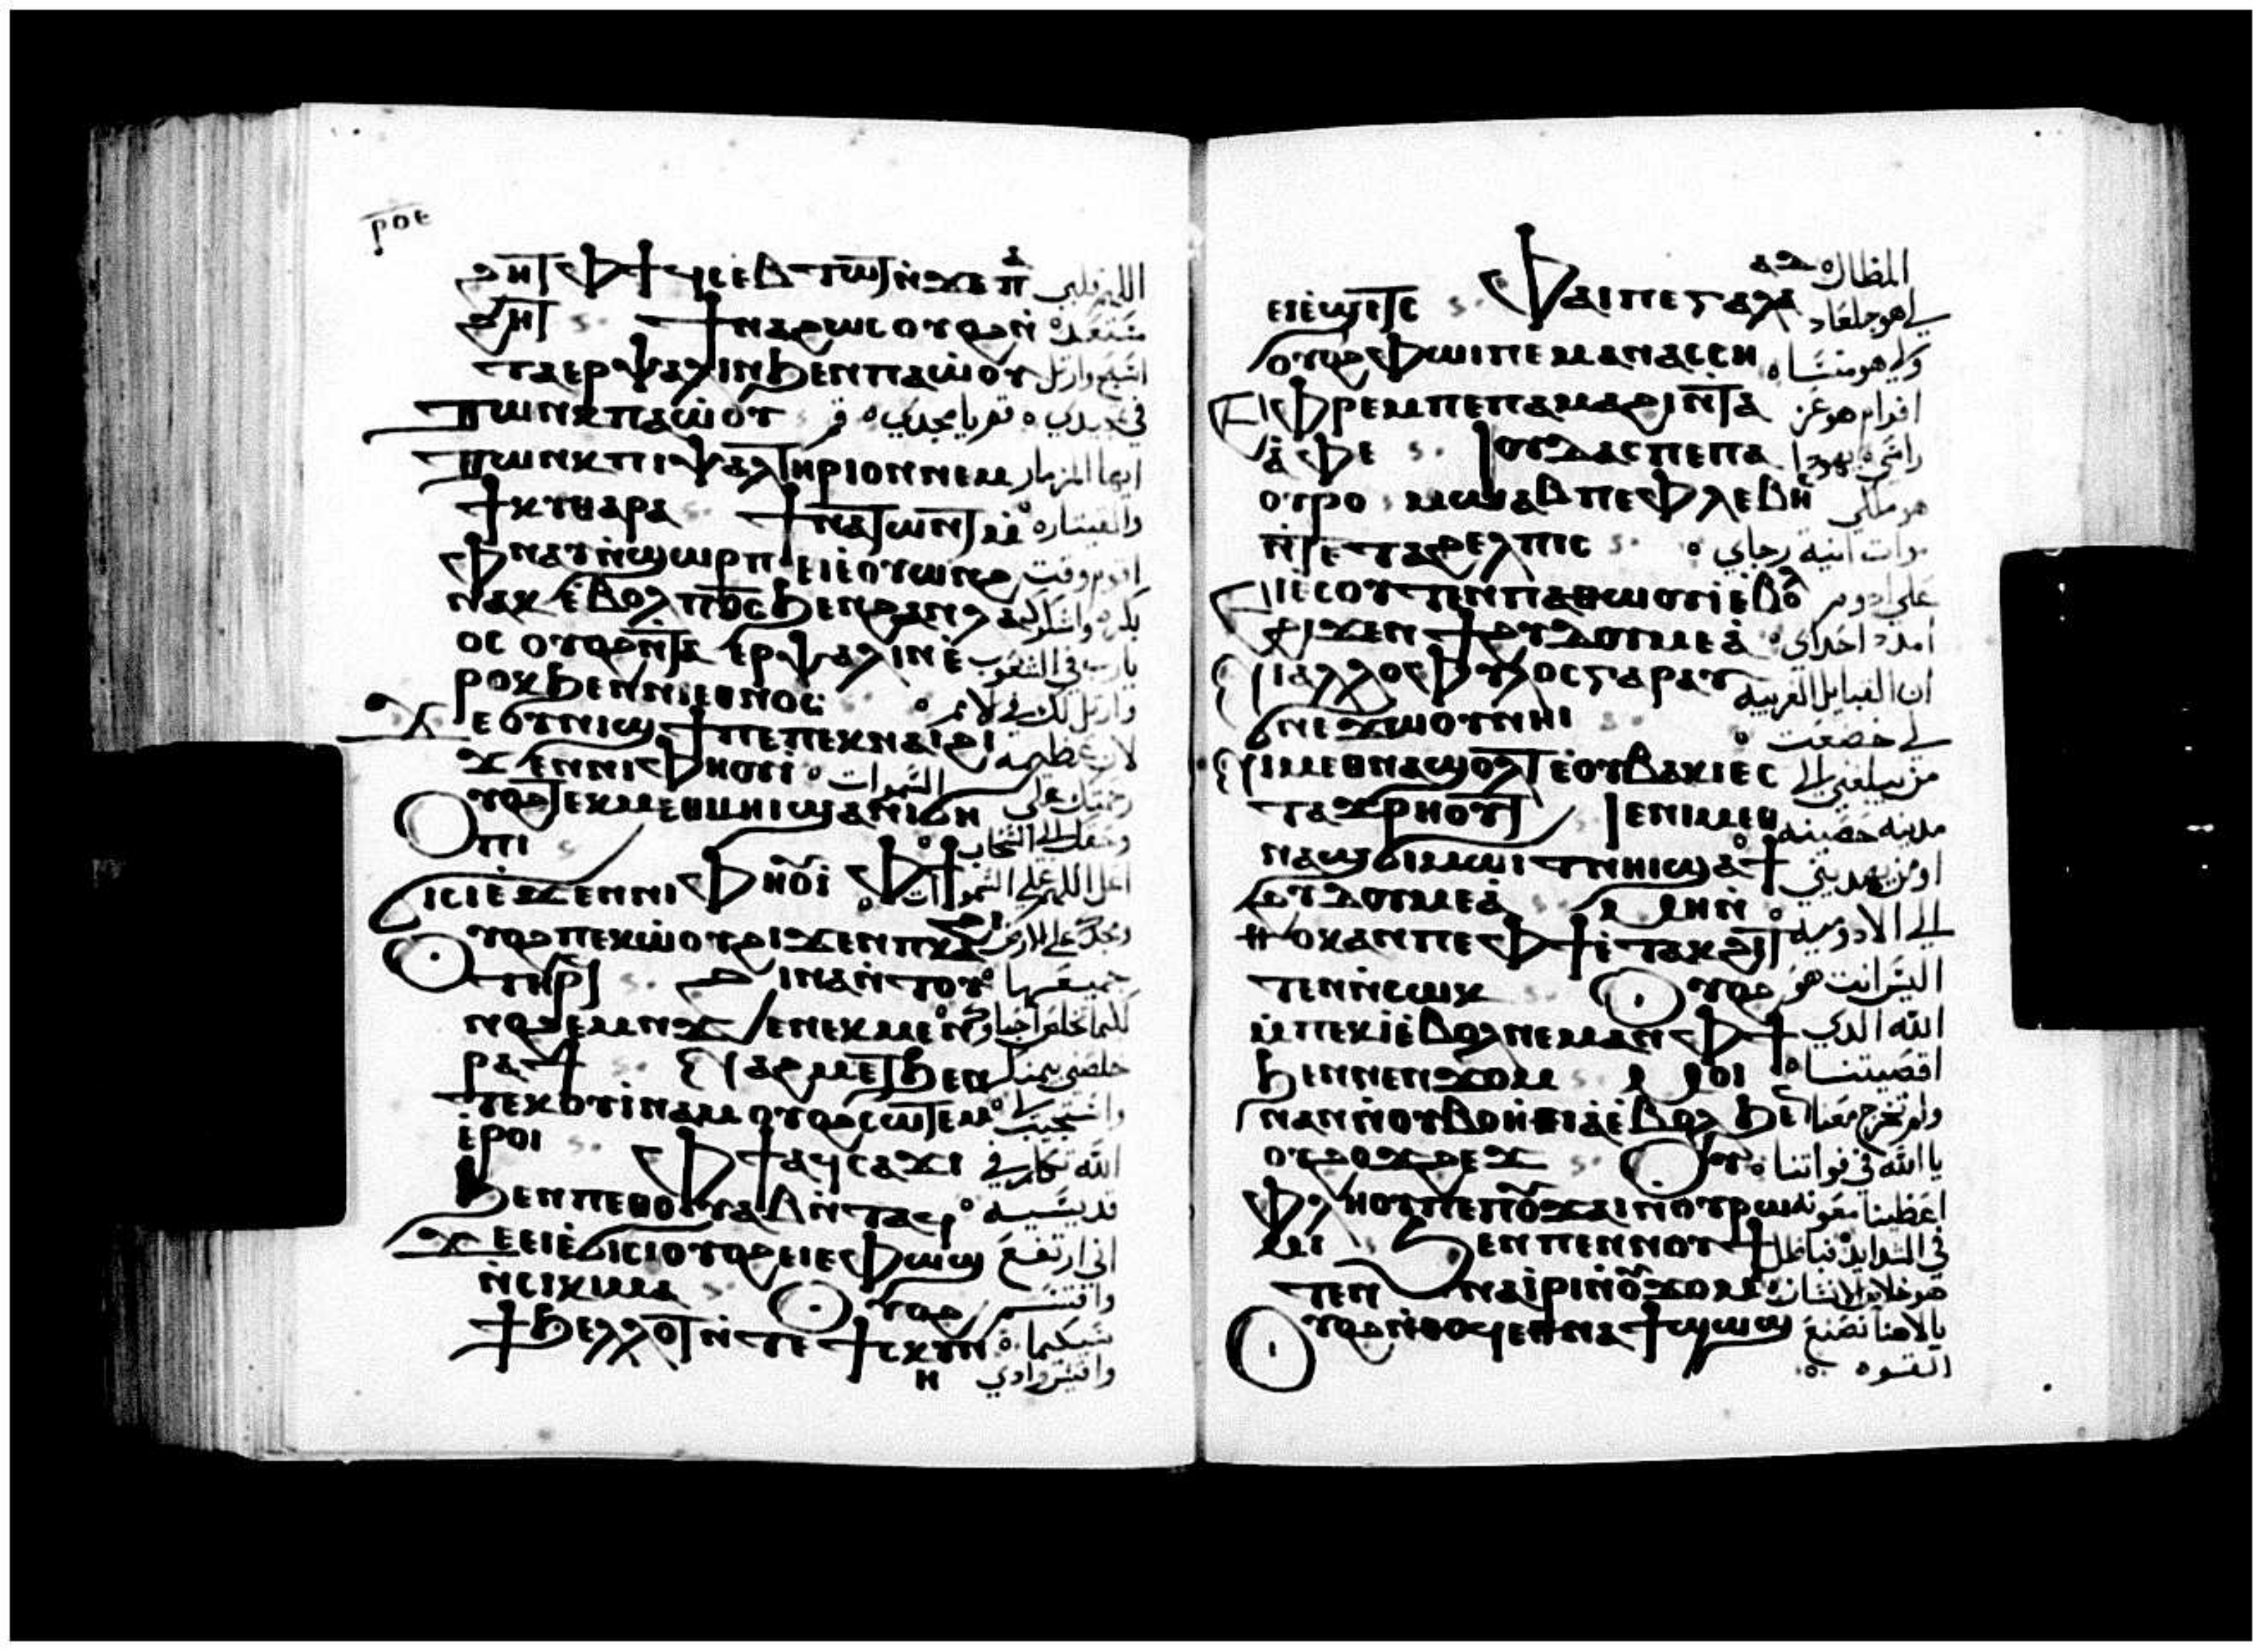 ⲣⲟⲉ
ϩⲏⲧ ⲫϯ ϥⲥⲉⲃⲧⲱⲧ ⲛϫⲉ ⲡⲁ
ϩⲏⲧ ϯⲛⲁϩⲱⲥ ⲟⲩⲟϩ ⲛ̀
ⲧⲁⲉⲣⲯⲁⲗⲓⲛ ϧⲉⲛ ⲡⲁⲱ̀ⲟⲩ
ⲧⲱⲛⲕ ⲡⲁⲱ̀ⲟⲩ
ⲧⲱⲛⲕ ⲡⲓⲯⲁⲗⲧⲏⲣⲓⲟⲛ ⲛⲉⲙ
ϯⲕⲩⲑⲁⲣⲁ ϯⲛⲁⲧⲱⲛⲧ ⲙ̀
ⲫⲛⲁⲩ ⲛ̀ϣⲱⲣⲡ ⲉⲓⲉ̀ⲟⲩⲱⲛϩ
ⲛⲁⲕ ⲉ̀ⲃⲟⲗ ⲡ̅ⲟ̅ⲥ̅ ϧⲉⲛ ϩⲁⲛⲗⲁ
ⲟⲥ ⲟⲩⲟϩ ⲛ̀ⲧⲁ ⲉⲣⲯⲁⲗⲓⲛ ⲉ̀
ⲣⲟⲕ ϧⲉⲛ ⲛⲓⲉⲑⲛⲟⲥ
ϫⲉ ⲟⲩⲛⲓϣϯ ⲡⲉ ⲡⲉⲕⲛⲁⲓ ϩⲓ
ϫⲉⲛ ⲛⲓⲫⲏⲟⲩⲓ السموات
ⲟⲩⲟϩ ⲧⲉⲕⲙⲉⲑⲙⲏⲓ ϣⲁ ⲛⲓϭⲏ
ⲡⲓ
ϭⲓⲥⲓ ⲉ̀ϫⲉⲛ ⲛⲓⲫⲏⲟⲩⲓ ⲫϯ
ⲟⲩⲟϩ ⲡⲉⲕⲱ̀ⲟⲩ ϩⲓϫⲉⲛ ⲡⲕⲁϩⲓ
ⲧⲏⲣϥ ϩⲓⲛⲁ ⲛ̀ⲧⲟⲩ
ⲛⲟϩⲉⲙ ⲛϫⲉ ⲛⲉⲕⲙⲉⲛ
ⲣⲁϯ ⲙⲁϩⲙⲉⲧ ϧⲉⲛ
ⲧⲉⲕⲟⲩⲓ̀ⲛⲁⲙ ⲟⲩⲟϩ ⲥⲱⲧⲉⲙ
ⲉ̀ⲣⲟⲓ ⲫϯ ⲁϥⲥⲁϫⲓ
ϧⲉⲛ ⲡⲉⲑⲟⲩⲁⲃ ⲛ̀ⲧⲁϥ
ϫⲉ ⲉⲓⲉ̀ϭⲓⲥⲓ ⲟⲩⲟϩ ⲉⲓⲉⲫⲱϣ
ⲛ̀ⲥⲓⲕⲓⲙⲁ ⲟⲩⲟϩ
ϯϧⲉⲗⲗⲟⲧ ⲛ̀ⲧⲉ ϯⲥⲕⲩⲛ
ⲏ
اللهم قلبي
مستعد
اسبح وارتل
في مجدي ه قم يا مجدي ه قم
ايها المزمار
والقيتاره
بكره واشكرك
يارب في الشعوب
وارتل لك في الامم
لان عظيمه
رحمتك على
وحقك الى السحاب
اعل اللهم على السموات
ومجدك على الارض
جميعها
خلصني بيمينك
واستجب لي
الله تكلم في
قدسه
اني ارتفع
واقسم
وادي
ⲉⲓⲉ̀ϣⲓⲧⲥ ⲫⲱⲓ ⲡⲉ ⲅⲁⲗⲁⲁⲇ
ⲟⲩⲟϩ ⲫⲱⲓ ⲡⲉ ⲙⲁⲛⲁⲥⲥⲏ
ⲉⲫⲣⲉⲙ ⲡⲉ ⲡⲁⲙⲁϩⲓ ⲛ̀ⲧⲁ
ⲁ̀ⲫⲉ ⲓⲟⲩⲇⲁⲥ ⲡⲉ ⲡⲁ
ⲟⲩⲣⲟ ⲙⲱⲁⲃ ⲡⲉ ⲫⲗⲉⲃⲏⲥ
ⲛ̀ⲧⲉ ⲧⲁϩⲉⲗⲡⲓⲥ
ⲉⲓⲉⲥⲟⲩⲧⲉⲛ ⲡⲁⲑⲱⲟⲩⲓ ⲉ̀ⲃⲟⲗ
ϩⲓϫⲉⲛ ϯϩⲩⲇⲟⲩⲙⲉⲁ̀
ⲛⲓⲁⲗⲗⲟⲫⲩⲗⲟⲥ ⲅⲁⲣ ⲁⲩ
ϭⲛⲉϫⲱⲟⲩ ⲛⲏⲓ
ⲛⲓⲙ ⲉⲑⲛⲁϣⲟⲗⲧ ⲉⲟⲩⲃⲁⲕⲓ ⲉⲥ
ⲧⲁϫⲣⲏⲟⲩⲧ ⲓⲉ ⲛⲓⲙ ⲉⲑ
ⲛⲁϣϭⲓⲙⲱⲓⲧ ⲛⲏⲓ ϣⲁ ϯ
ϩⲩⲇⲟⲩⲙⲉⲁ̀ ⲙⲏ ⲛ̀
ⲑⲟⲕ ⲁⲛ ⲡⲉ ⲫϯ ⲉ̀ⲧⲁⲕϩⲓ
ⲧⲉⲛ ⲛ̀ⲥⲱⲕ ⲟⲩⲟϩ
ⲙ̀ⲡⲉⲕⲓ̀ ⲉ̀ⲃⲟⲗ ⲛⲉⲙⲁⲛ ⲫϯ
ϧⲉⲛ ⲛⲉⲛϫⲟⲙ ⲙⲟⲓ
ⲛⲁⲛ ⲛ̀ⲟⲩⲃⲟⲏ̀ⲑⲓⲁ̀ ⲉ̀ⲃⲟⲗ ϧⲉⲛ
ⲟⲩϩⲟϫϩⲉϫ ⲟⲩ
ⲉ̀ⲫⲗⲏⲟⲩ ⲡⲉ ⲡⲛⲟϩⲉⲙ ⲛ̀ⲟⲩⲣⲱ
ⲙⲓ ϧⲉⲛ ⲡⲉⲛⲛⲟⲩϯ
ⲧⲉⲛⲛⲁⲓ̀ⲣⲓ ⲛ̀ⲟⲩϫⲟⲙ
ⲟⲩⲟϩ ⲛ̀ⲑⲟϥ ⲉⲑⲛⲁϯϣⲱϣ
المظال
لي هو جلعاد
ولي هو منسا
افرام هو عز
راسي يهودا
هو ملكي
رجاي
على ادوم
امدد احذاي
ان القبايل الغريبه
لي خضعت
من يبلغني الى
مدينه حصينه
او من يهديني
الى الادوميه
اليس انت هو
الله الدي
اقصيتنا
ولم تخرج معنا
يا الله في قواتنا
اعطينا معونه
في الشدايد فباطل
هو خلاص الانسان
بالاهنا نصنع
القوه